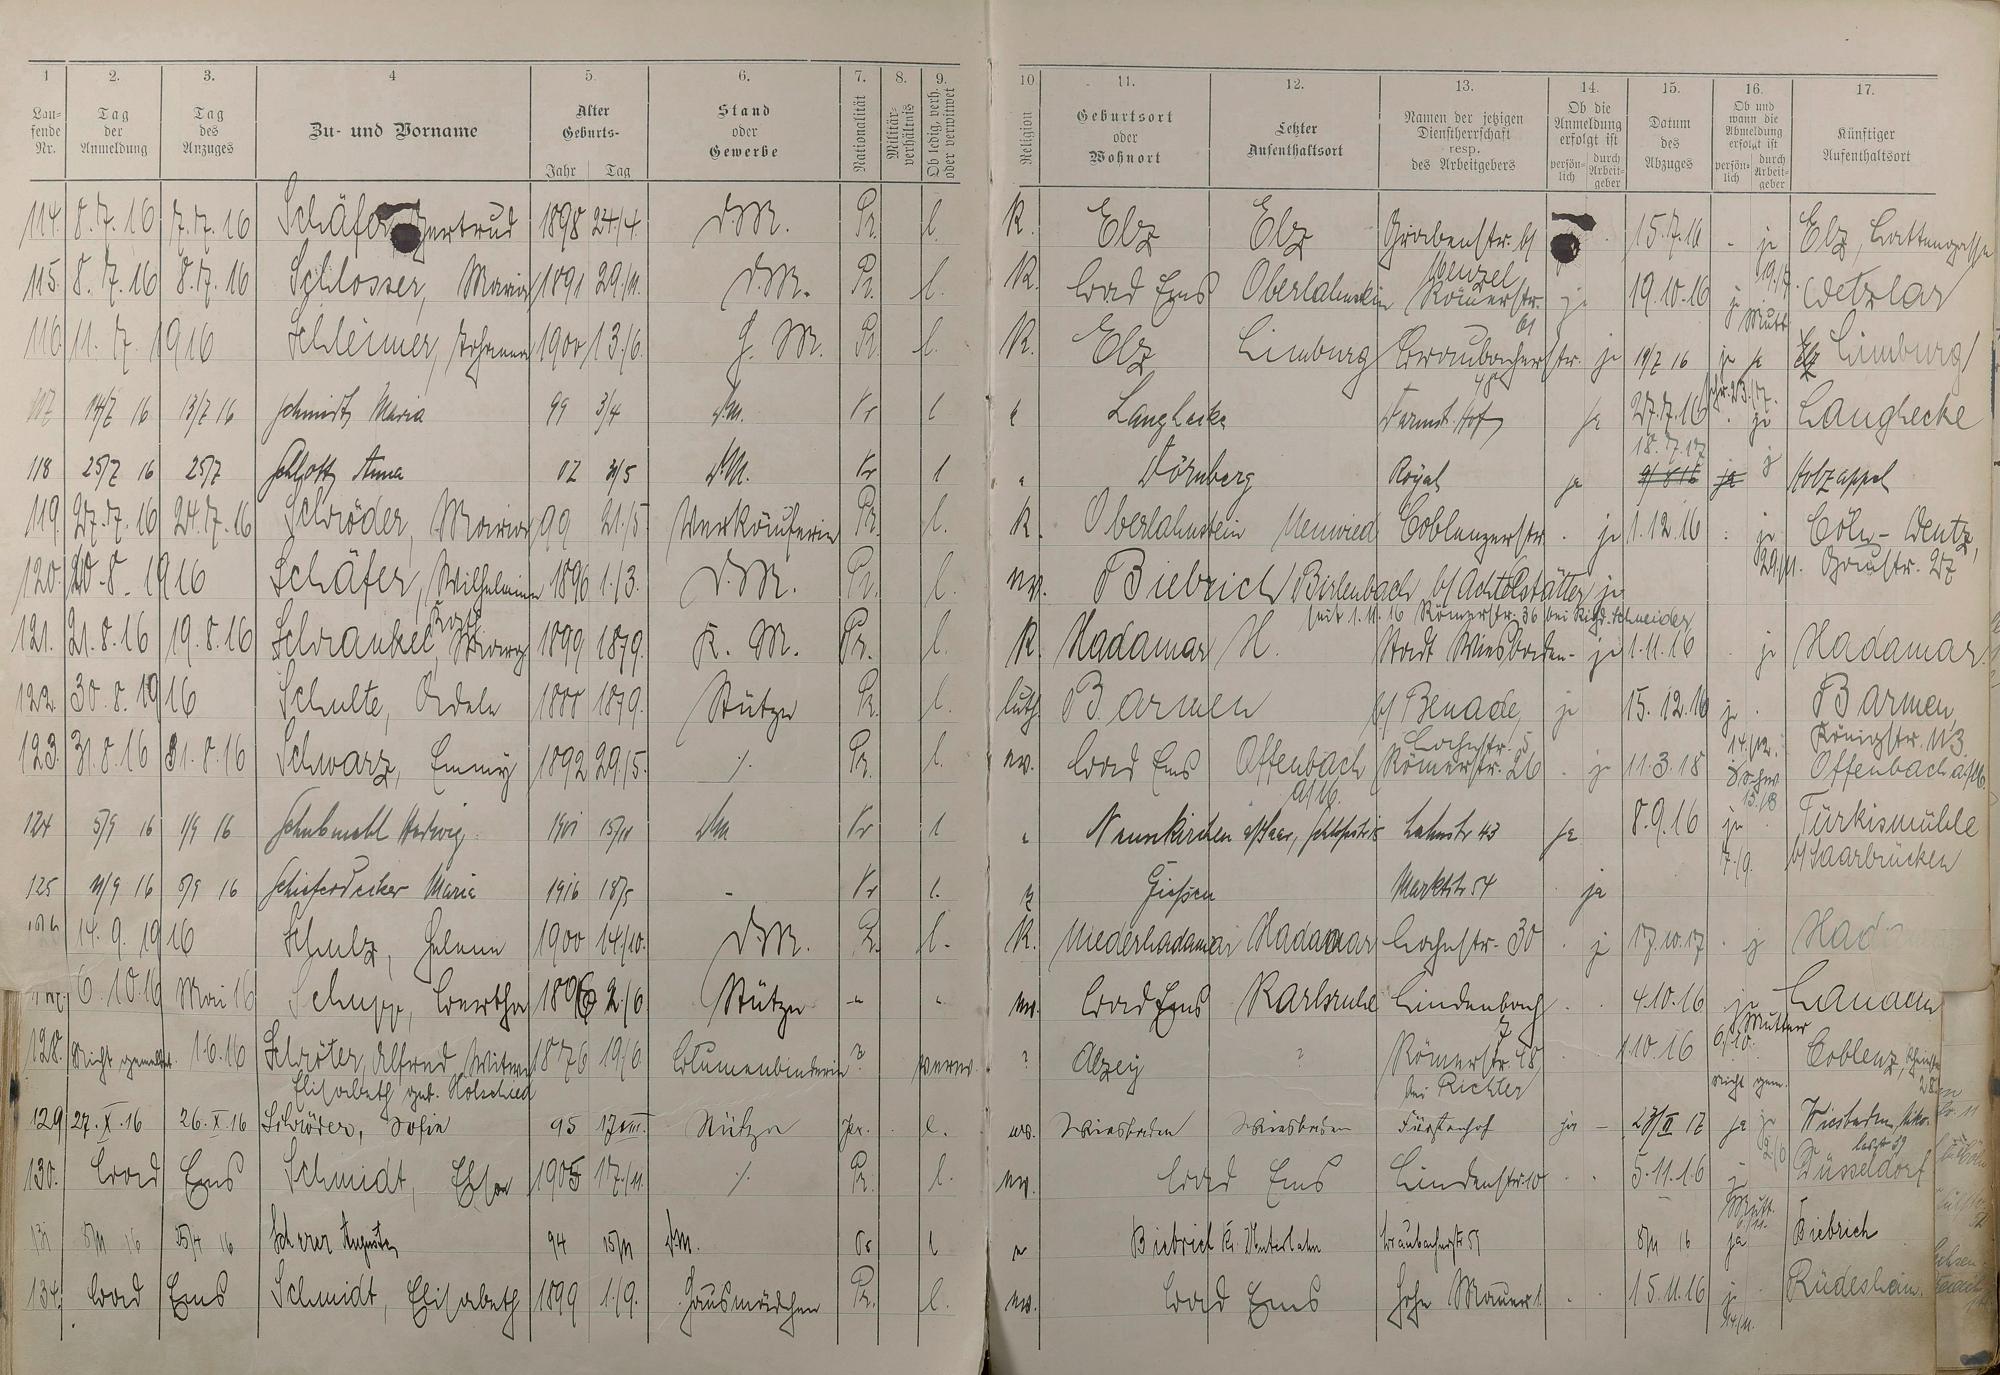 1 2. 3. 4 5. 6. 7. 8. 9. 10 11. 12. 13. 14. 15. 16. 17.
Lau-
fende
Nr.
Tag
der
Anmeldung
Tag
des
Anzuges
Zu- und Vorname
Alter
Geburts-
Jahr Tag
Stand
oder
Gewerbe
Nationalität
Militär-
verhältnis
Ob ledig, verh.
oder verwitwet
Religion
Geburtsort
oder
Wohnort
Letzter
Aufenthaltsort
Namen der jetzigen
Dienstherrschaft
resp.
des Arbeitgebers
Ob die
Anmeldung
erfolgt ist
persön-
lich
durch
Arbeit-
geber
Datum
des
Abzuges
Ob und
wann die
Abmeldung
erfolgt ist
persön-
lich
durch
Arbeit-
geber
Künftiger
Aufenthaltsort
114. 8.7.16 7.7.16 Schäfer Gertrud 1898 24./4. D.M. Pr. l. K. Elz Elz Grabenstr. 15.7.16 - ja Elz,
115. 8.7.16 8.7.16 Schlosser, Maria 1891 29./11. D.M. Pr. l. K. Bad Ems Oberlahnstein Menzel Römerstr. 61 ja 19.10.16 ja Wetzlar
116. 11.7.1916 Schleimer, Johanna 1900 13./6. D.M. Pr. l. K. Elz Limburg Braubacherstr. ja 19/7 16 ja Limburg
117 14/7 16 13/7 16 Schmidt Maria 99 3/4 D.M. Pr l Langhecke Darmst. Hof ja 27.7.16 ja Langhecke
118 25/7 16 25/7 Schlott Anna 02 D.M. Pr l Dörnberg Royal ja 18.7.17 ja Holzappel
119. 27.7.16 24.7.16 Schröder, Maria 99 21./5 Verkäuferin Pr. l. K. Oberlahnstein Neuwied Coblenzerstr. ja 1.12.16 ja Cöln-Deutz,
29./11.
120. 20.8.1916 Schäfer, Wilhelmine 1896 1./3. D.M. Pr. l. ev. Biebrich Birlenbach b/ Achtelstätter ja
seit 1.11.16 Römerstr. 36 bei Rich. Schneider
121. 21.8.16 19.8.16 Schrankel, 1899 18./9. K.M. Pr. l. K. Hadamar H. Stadt Wiesbaden - ja 1.11.16 ja Hadamar
122. 30.8.1916 Schulte, Adele 18./9. Stütze Pr. l. luth. Barmen b/ Benade, ja 15.12.16 ja Barmen,
Lahnstr. 5 14./12. Königstr. 113
123. 31.8.16 31.8.16 Schwarz, Emmy 1892 29./5. ./. Pr. l. ev. Bad Ems Offenbach a/M. Römerstr. 26 ja 11.3.18 Offenbach a/M.
124 5/9 16 1/9 16 Schuhmehl Hedwig 1901 DM Pr l Neunkirchen a/Saar, Lahnstr 43 ja 8.9.16 ja Türkismühle
7./9. b/Saarbrücken
125 11/9 16 5/9 16 Schieferdecker Maria 1916 18/5 - Pr l. Giessen Marktstr 54 ja
14.9.1916 Schulz, Helene 1900 14./10. D.M. Pr. l. K. Niederhadamar Hadamar Lahnstr. 30 ja 17.10.17 ja Had
6.10.16 Mai 16 Schupp, Bertha 1896 2./6 Stütze ev. Bad Ems Karlsruhe Lindenbach 4.10.16 ja
Mutter
128. Nicht gemeldet. 1.6.16 Schröter, Alfred Witwe 1876 19./6 Blumenbinderin ? verw. ? Alzey ? Römerstr. 48 1.10.16 6/10. Coblenz,
Elisabeth geb. Holschied bei Richter nicht gem.
129 27.X.16 26.X.16 Schröder, Sofie 95 Stütze Pr. l. ev. Wiesbaden Wiesbaden Fürstenhof ja - 17 ja Wiesbaden,
130. Bad Ems Schmidt, Elsa 1905 17./11. ./. Pr. l. ev. Bad Ems Lindenstr. 10 5.11.16 ja Düsseldorf
Mutt.
131 16 16 Scherer Auguste 94 15/11 D.M. Pr l Biebrich Kr. Unterlahn Braubacherstr 51 8/11 16 ja Biebrich
Bad Ems Schmidt, Elisabeth 1899 1./9. Hausmädchen Pr. l. ev. Bad Ems Hohe Mauer 1. 15.11.16 ja Rüdesheim
14./11.